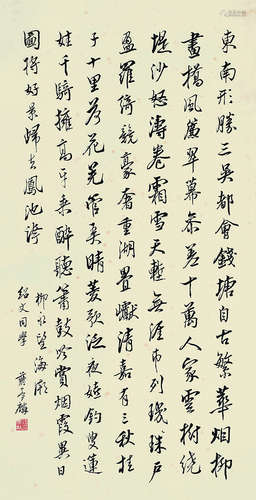 東南形勝三吳都會錢塘自古繁華烟柳
畫橋風簾翠幕參差十萬人家雲樹繞
堤沙怒濤卷霜雪天塹無涯市列璣珠戶
盈羅綺競豪奢重湖疊巘清嘉有三秋桂
子十里荷花羌管弄晴菱歌泛夜嬉釣叟蓮
娃千騎擁高牙乘醉聽簫鼓吟賞烟霞異日
圖將好景歸去鳳池誇
柳永望海潮
紹文同學